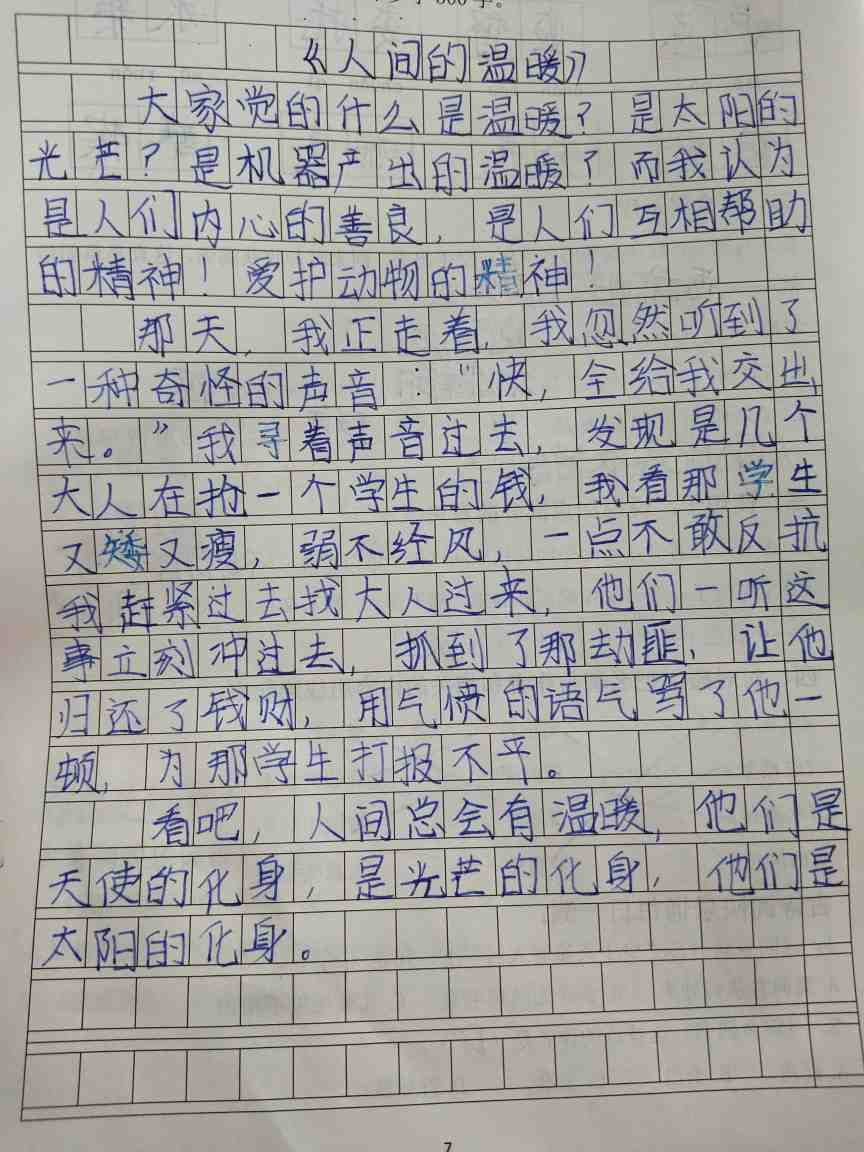 《人间的温暖》
大家觉的什么是温暖？是太阳的
光芒？是机器产出的温暖？而我认为
是人们内心的善良，是人们互相帮助
的精神！爱护动物的精神！
那天，我正走着，我忽然听到了
一种奇怪的声音："快，全给我交出
来。"我寻着声音过去，发现是几个
大人在抢一个学生的钱，我看那学生
又矮又瘦，弱不经风，一点不敢反抗
我赶紧过去找大人过来，他们一听这
事立刻冲过去，抓到了那劫匪，让他
归还了钱财，用气愤的语气骂了他一
顿，为那学生打报不平。
看吧，人间总会有温暖，他们是
天使的化身，是光芒的化身，他们是
太阳的化身。
7